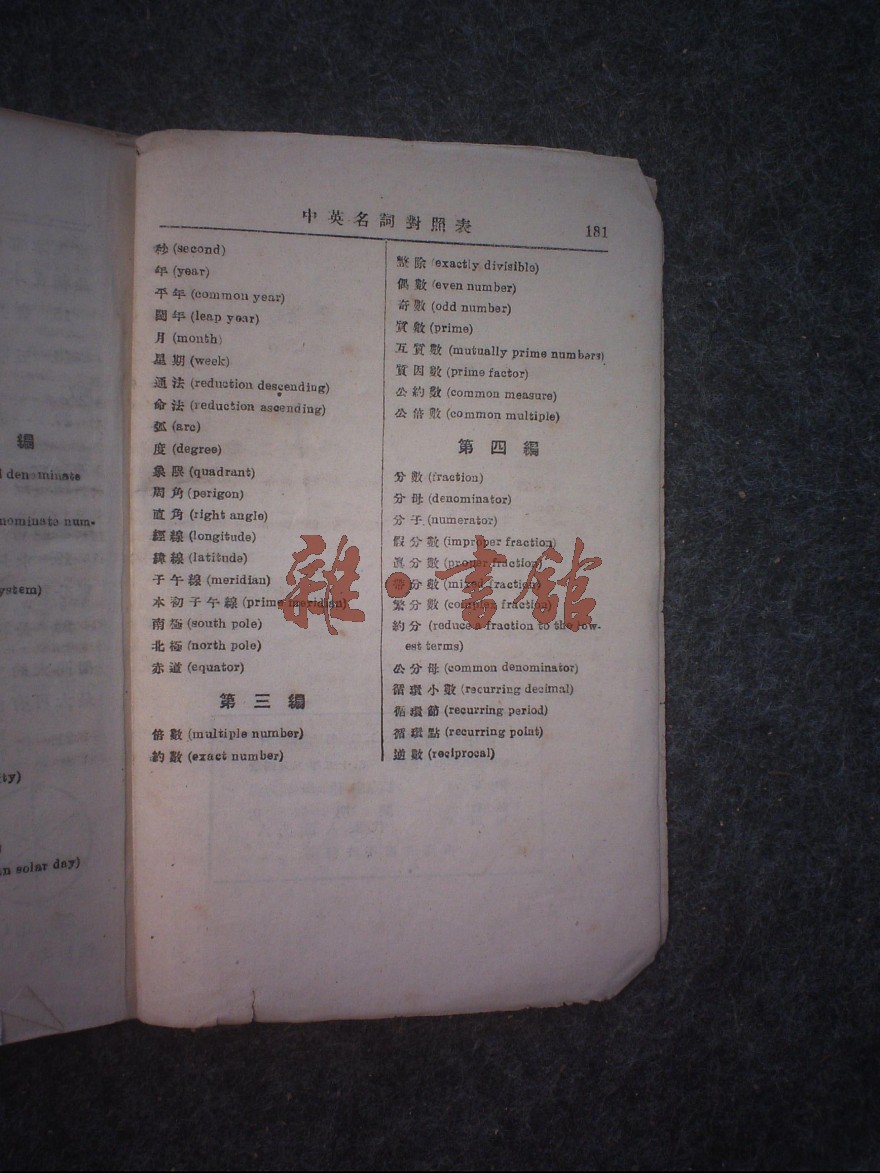 編
denominate
nominate num-
ystem)
ty)
n solar day)
中英名詞對照表
181
秒 (second)
年 (year)
平年 (common year)
閏年 (leap year)
月 (month)
星期 (week)
通法 (reduction descending)
命法 (reduction ascending)
弧 (arc)
度 (degree)
象限 (quadrant)
周角 (perigon)
直角 (right angle)
經線 (longitude)
緯線 (latitude)
子午線 (meridian)
本初子午線 (prime meridian)
南極 (south pole)
北極 (north pole)
赤道 (equator)
第三編
倍數 (multiple number)
約數 (exact number)
整除 (exactly divisible)
偶數 (even number)
奇數 (odd number)
質數 (prime)
互質數 (mutually prime numbers)
質因數 (prime factor)
公約數 (common measure)
公倍數 (common multiple)
第四編
分數 (fraction)
分母 (denominator)
分子 (numerator)
假分數 (improper fraction)
眞分數 (proper fraction)
帶分數 (mixed fraction)
繁分數 (complex fraction)
約分 (reduce a fraction to the low-
est terms)
公分母 (common denominator)
循環小數 (recurring decimal)
循環節 (recurring period)
循環點 (recurring point)
逆數 (reciprocal)
雜·書館